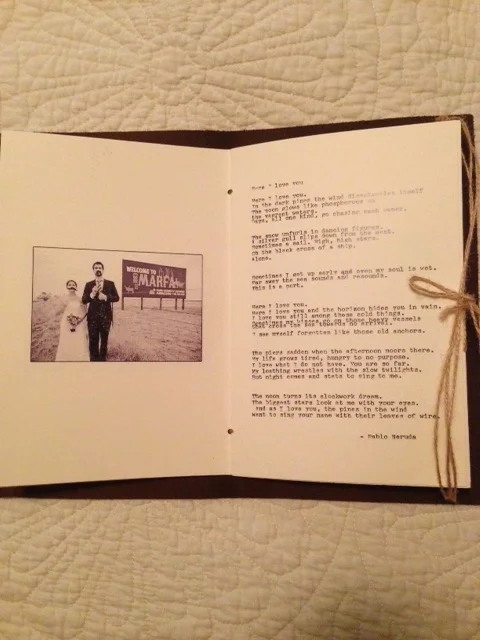 WELCOME TO
MARFA
Here I love you
Here I love you.
In the dark pines the wind disentangles itself
The moon glows like phosphorous on
the vagrant waters.
Days, all one kind, go chasing each other.
The snow unfurls in dancing figures.
A silver gull slips down from the west.
Sometimes a sail. High, high stars.
Oh the black cross of a ship.
Alone.
Sometimes I get up early and even my soul is wet.
Far away the sea sounds and resounds.
This is a port.
Here I love you.
Here I love you and the horizon hides you in vain.
I love you still among these cold things.
Sometimes my kisses go on those heavy vessels
that cross the sea towards no arrival.
I see myself forgotten like those old anchors.
The piers sadden when the afternoon moors there.
My life grows tired, hungry to no purpose.
I love what I do not have. You are so far.
My loathing wrestles with the slow twilights.
But night comes and starts to sing to me.
The moon turns its clockwork dream.
The biggest stars look at me with your eyes.
And as I love you, the pines in the wind
want to sing your name with their leaves of wire.
- Pablo Neruda